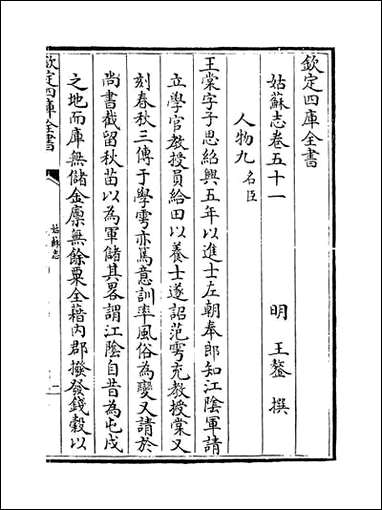 欽定四庫全書
姑蘇志卷五十一
明 王鏊 撰
人物九 名臣
王棠字子思紹興五年以進士左朝奉郎知江陰軍請
立學官教授員給田以養士遂詔范雩充教授棠又
刻春秋三傳于學雩亦篤意訓率風俗為變又請於
尚書截留秋苗以為軍儲其畧謂江陰自昔為屯戍
之地而庫無儲金廪無餘粟全藉内郡撥發錢穀以
欽定四庫全書
姑蘇志